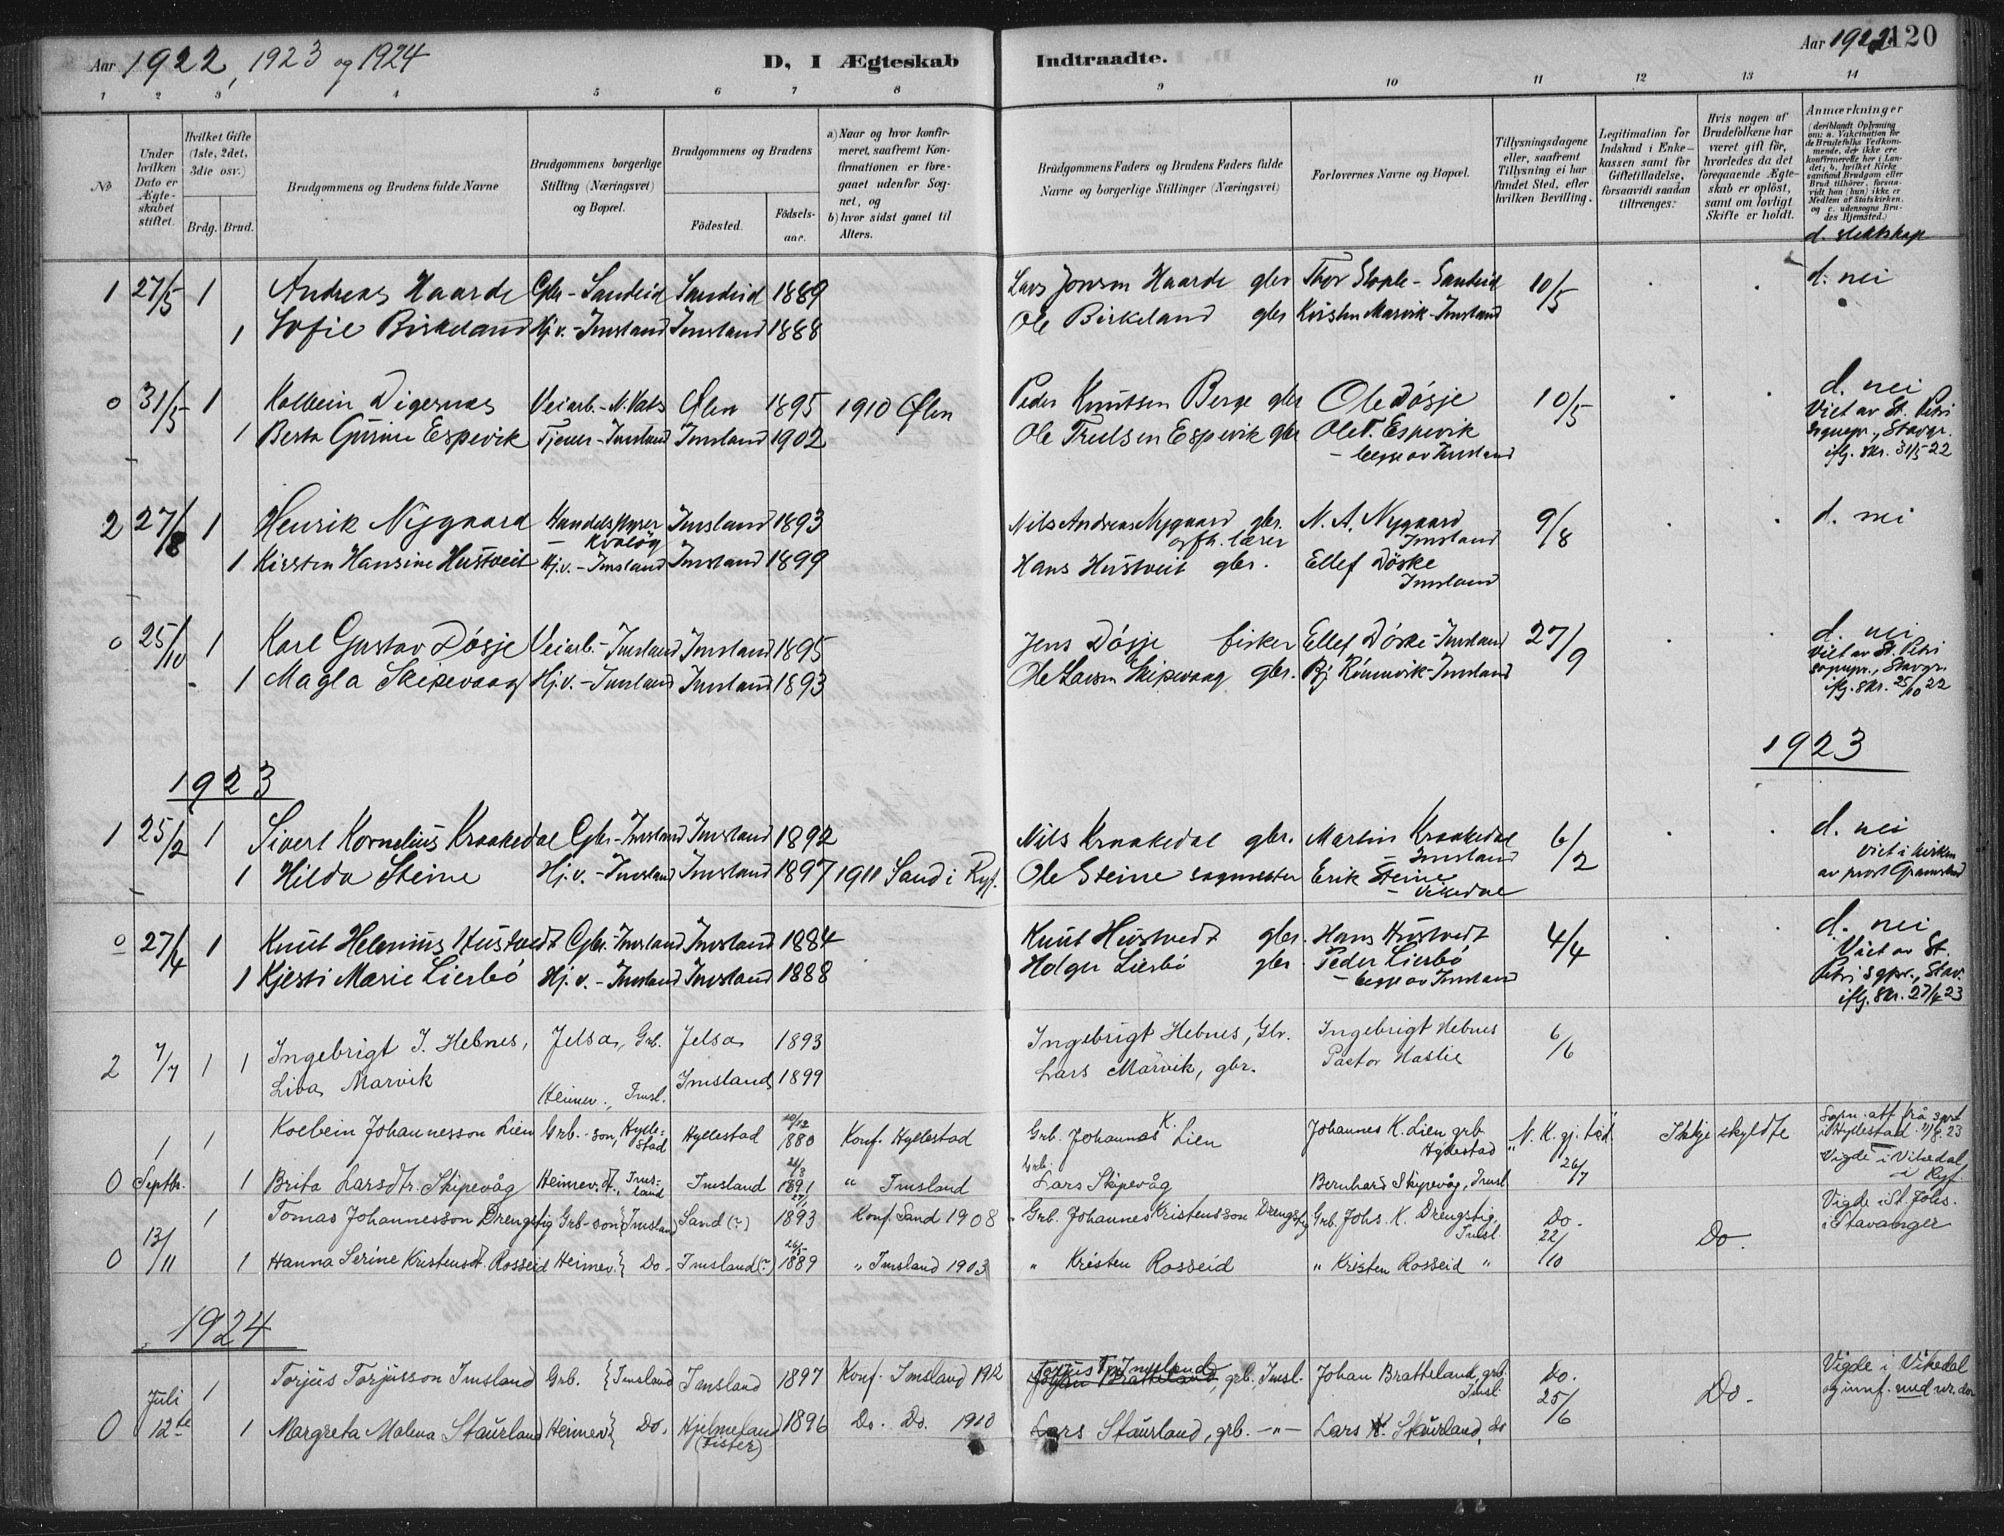 Aar 1922, 1923 og 1924
D, I Ægteskab Indtraadte.
Aar 1922 120
1 2 3 4 5 6 7 8 9 10 11 12 13 14
No
Under hvilken Dato er Ægteskabet stiftet.
Hvilket Gifte (1ste, 2det, 3die osv.)
Brdg. Brud.
Brudgommens og Brudens fulde Navne
Brudgommens borgerlige Stilling (Næringsvei) og Bopæl.
Brudgommens og Brudens
Födested. Födsels-aar.
a) Naar og hvor konfirmeret, saafremt Konfirmationen er foregaaet udenfor Sognet, og
b) hvor sidst gaaet til Alters.
Brudgommens Faders og Brudens Faders fulde Navne og borgerlige Stillinger (Næringsvei)
Forlovernes Navne og Bopæl.
Tillysningsdagene eller, saafremt Tillysning ei har fundet Sted, efter hvilken Bevilling.
Legitimation for Indskud i Enkekassen samt for Giftetilladelse, forsaavidt saadan tiltrænges:
Hvis nogen af Brudefolkene har været gift för, hvorledes da det foregaaende Ægteskab er oplöst, samt om lovligt Skifte er holdt.
Anmærkninger
(deriblandt Oplysning om: a. Vakcination for de Brudefolks Vedkommende, der ikke ere konfirmerede her i Landet; b. hvilket Kirkesamfund Brudgom eller Brud tilhörer, forsaavidt han (hun) ikke er Medlem af Statskirken, og c. udensogns Brudes Hjemsted.)
d. slektskap
1 27/5 1 Andreas Haarde Gbr - Sandeid Sandeid 1889 Lars Jonsen Haarde gbr Thor Stople - Sandeid 10/5 d. nei
1 Sofie Birkeland Hj.v. - Imsland Imsland 1888 Ole Birkeland gbr Kristen Marvik - Imsland
0 31/5 1 Kolbein Digernes Veiarb. - N. Vats Ølen 1895 1910 Ølen Peder Knutsen Berge gbr Ole Døsje 10/5 d. nei
1 Berta Gurine Espevik Tjener - Imsland Imsland 1902 Ole Trulsen Espevik gbr Ole T. Espevik
– begge av Imsland
Viet av St. Petri sognepr., Stavgr. iflg. skr. 31/5 22
2 27/8 1 Henrik Nygaard Handelsstyrer – Kvaløy Imsland 1893 Nils Andreas Nygaard gbr. og fh. lærer N. A. Nygaard Imsland 9/8 d. nei
1 Kirsten Hansine Hustveit Hj.v. - Imsland Imsland 1899 Hans Hustveit gbr. Ellef Døske Imsland
0 25/10 1 Karl Gustav Døsje Veiarb. - Imsland Imsland 1895 Jens Døsje fisker Ellef Døske - Imsland 27/9 d. nei
1 Magla Skipevaag Hj.v. - Imsland Imsland 1893 Ole Larsen Skipevaag gbr. Bj Rønnevik - Imsland
Viet av St. Petri sognpr., Stavgr. iflg. skr. 25/10 22
1923 1923
1 25/2 1 Sivert Kornelius Kraakedal Gbr - Imsland Imsland 1892 Nils Kraakedal gbr. Martin Kraakedal – Imsland 6/2 d. nei
1 Hilda Steine Hj.v. - Imsland Imsland 1897 1911 Sand i Ryf. Ole Steine sagmester Erik Steine – Vikedal
Viet i kirken av prost
0 27/4 1 Knut Helenius Hustvedt Gbr. - Imsland Imsland 1884 Knut Hustvedt gbr. Hans Hustvedt 4/4 d. nei
1 Kjesti Marie Lierbø Hj. v. - Imsland Imsland 1888 Holger Lierbø gbr. Peder Lierbø
– begge av Imsland
Viet av St. Petri sgpr., Stav. iflg. skr. 27/4 23
2 7/7 1 1 Ingebrigt J. Hebnes, Jelsa, Grb. Jelsa 1893 Ingebrigt Hebnes, Gbr. Ingebrigt Hebnes 6/6
Liva Marvik Heimev., Imsl. Imsland 1899 Lars Marvik, gbr. Pastor Haslie
1 1 Kolbein Johannesson Lien Grb. - son, Hyllestad Hyllestad 20/12 1880 Konf. Hyllestad Grb. Johannes K. Lien Johannes K. Lien grb Hyllestad N. K. gj. tid Ikkje skyldte Sogn. att. frå sprt i Hyllestad 11/8.23
0 Septbr. 1 Brita Larsdtr. Skipevåg Heimev. dt., Imsland Imsland 1891 " Imsland Grb. Lars Skipevåg Bernhard Skipevåg, Imsl " 26/7 Vigde i Vikedal i Ryf.
1 Tomas Johannesson Drengstig Grb - son Imsland Sand (?) 1893 Konf. Sand 1908 Grb. Johannes Kristensson Drengstig Grb. Johs. K. Drengstig, Imsl. Do. Vigde i St. Johs. i Stavanger
0 13/11 1 Hanna Serine Kristensdt. Rosseid Heimev. Do. Imsland (?) 26/5 1889 " Imsland 1903 " Kristen Rosseid " Kristen Rosseid " 22/10 Do.
1924
1 Torjus Torjusson Imsland Grb. Imsland Imsland 1897 Konf. Imsland 1912 Torjus T. Imsland, grb., Imsl. Johan Bratteland, grb, Imsl. Do. Vigde i Vikedal
0 Juli 12te 1 Margreta Malena Staurland Heimev Do. Hjelmeland (Fister) 1896 Do. Do. 1910 Lars Staurland, grb. -"- Lars K. Staurland, do 25/6 Do.